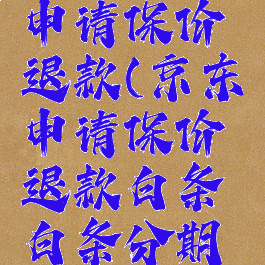 申请保价
退款(京东
申请保价
退款白条
白条分期